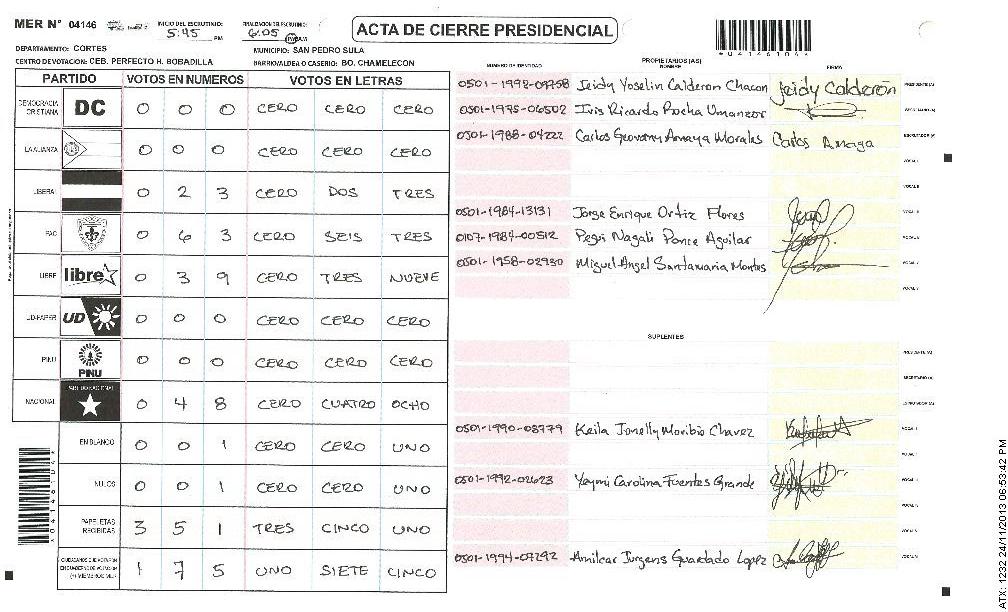 MER N° 04146
INICIO DEL ESCRUTINIO: 5:45 PM
FINALIZACION DEL ESCRUTINIO: 6:05
ACTA DE CIERRE PRESIDENCIAL
*04146104*
DEPARTAMENTO: CORTES
MUNICIPIO: SAN PEDRO SULA
CENTRO DE VOTACION: CEB. PERFECTO H. BOBADILLA
BARRIO/ALDEA O CASERIO: BO. CHAMELECON
PARTIDO VOTOS EN NUMEROS VOTOS EN LETRAS
DEMOCRACIA CRISTIANA DC 0 0 0 CERO CERO CERO
LA ALIANZA 0 0 0 CERO CERO CERO
LIBERAL 0 2 3 CERO DOS TRES
PAC 0 6 3 CERO SEIS TRES
LIBRE libre 0 3 9 CERO TRES NUEVE
UD-FAPER UD 0 0 0 CERO CERO CERO
PINU PINU 0 0 0 CERO CERO CERO
NACIONAL PARTIDO NACIONAL 0 4 8 CERO CUATRO OCHO
EN BLANCO 0 0 1 CERO CERO UNO
NULOS 0 0 1 CERO CERO UNO
PAPELETAS RECIBIDAS 3 5 1 TRES CINCO UNO
CIUDADANOS QUE VOTARON EN CUADERNO DE VOTACION (+) MIEMBROS MER 1 7 5 UNO SIETE CINCO
NUMERO DE IDENTIDAD
PROPIETARIOS (AS)
NOMBRE
FIRMA
0501-1992-09758 Jeidy Yoselin Calderon Chacon Jeidy Calderón PRESIDENTE (A)
0501-1995-06502 Iris Ricardo Rocha Umanzor SECRETARIO (A)
0501-1988-04222 Carlos Geovany Amaya Morales Carlos Amaya ESCRUTADOR (A)
VOCAL I
VOCAL II
0501-1984-13131 Jorge Enrique Ortiz Flores
0107-1984-00512 Pegui Nagali Ponce Aguilar
0501-1958-02930 Miguel Angel Santamaria Montes
SUPLENTES
PRESIDENTE (A)
SECRETARIO (A)
ESCRUTADOR (A)
0501-1990-08779 Keila Jonelly Moribio Chavez
0501-1992-02623 Yaymi Carolina Fuentes Grande
0501-1994-07292 Amilcar Jurgens Guardado Lopez
*04146104*
ATX: 1232 24/11/2013 06:53:42 PM